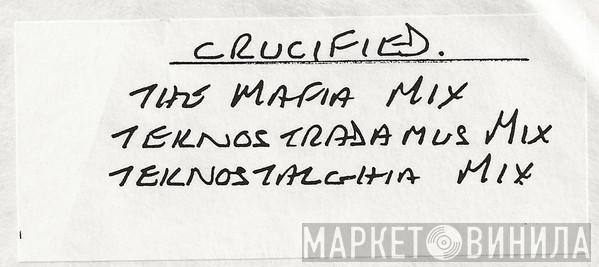 CRUCIFIED.
THE MAFIA MIX
TEKNOSTRADAMUS MIX
TEKNOSTALGHIA MIX
МАРКЕТ ВИНИЛА